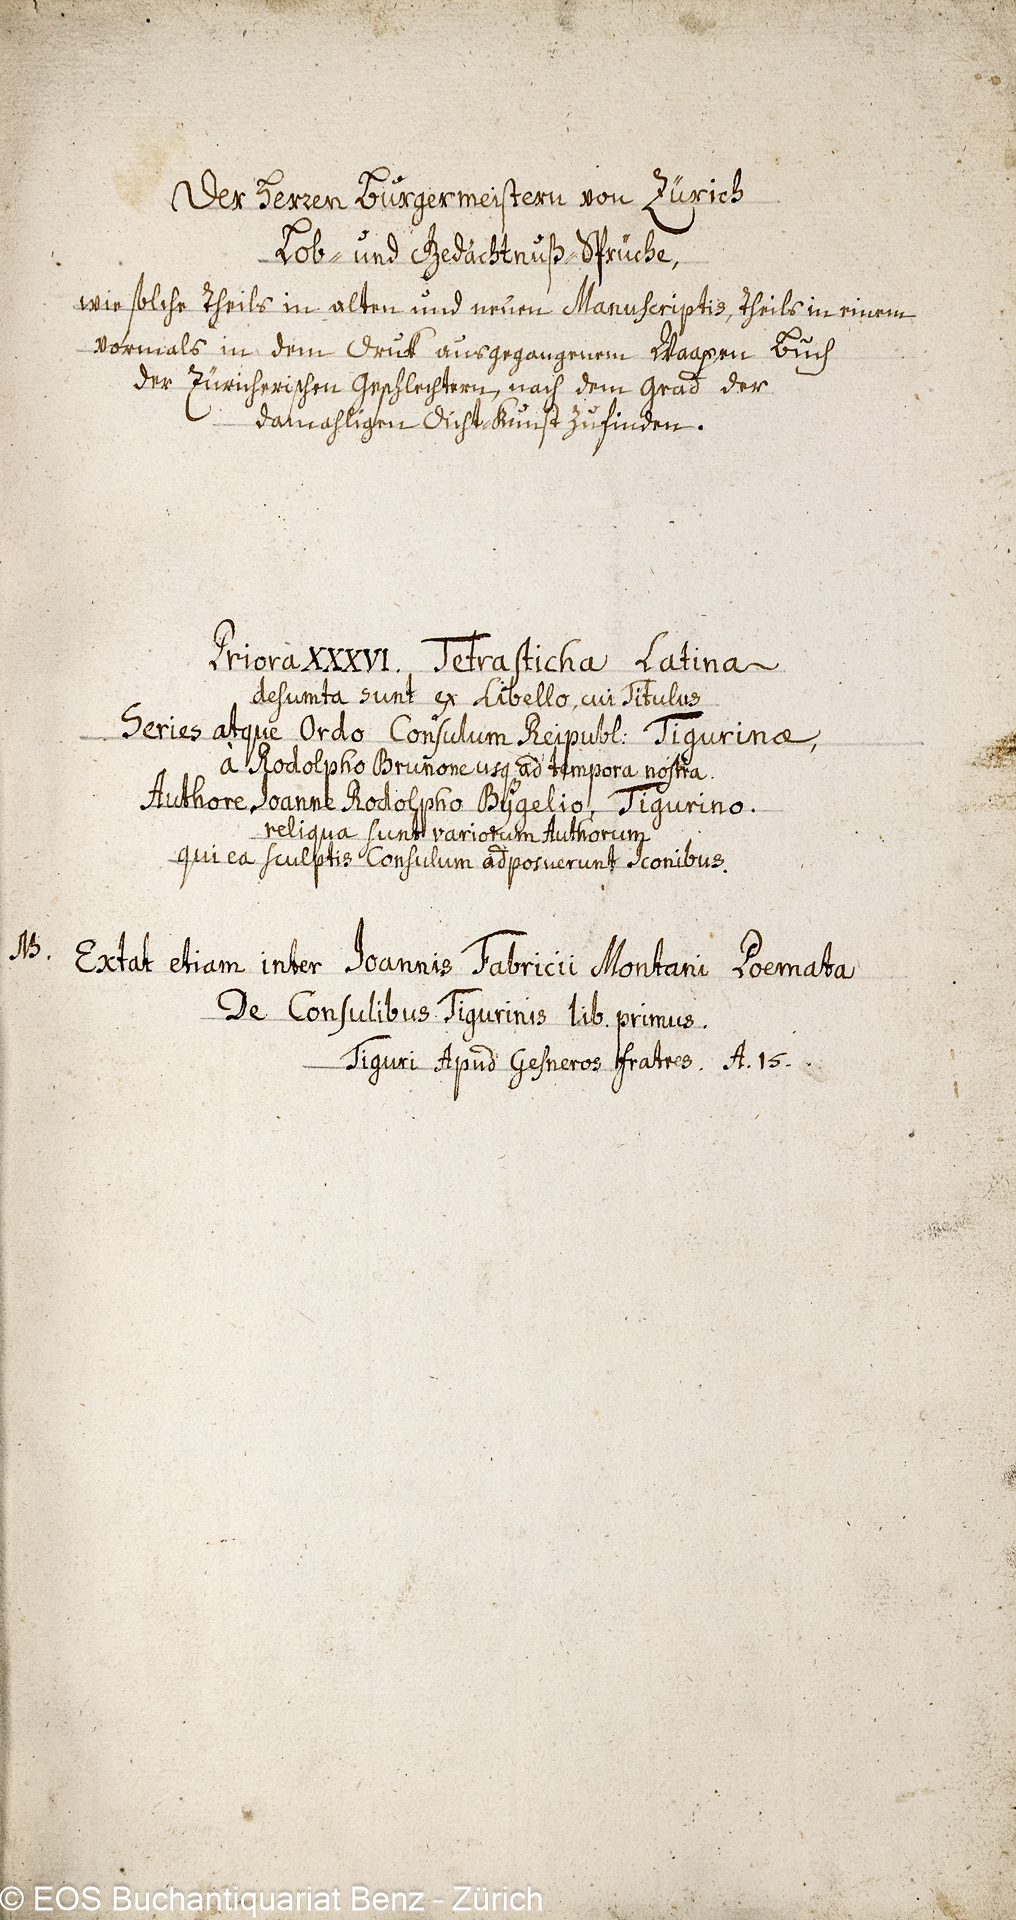 Der Herren Burgermeistern von Zürich
Lob- und Gedächtnuß-Sprüche,
wie solche Theils in alten und neuen Manuscriptis, Theils in einem
vormals in dem Druk ausgegangenem Waapen Buch
der Züricherischen Geschlechtern, nach dem Grad der
damahligen Dicht-Kunst zufinden.
Priora XXXVI. Tetrasticha Latina
desumta sunt ex Libello, cui Titulus
Series atque Ordo Consulum Reipubl: Tigurinæ,
à Rodolpho Brun̄one usq; ad tempora nostra.
Authore Joanne Rodolpho Bÿgelio, Tigurino.
reliqua sunt variorum Authorum
qui ea sculptis Consulum adposuerunt Iconibus.
NB. Extat etiam inter Joannis Fabricii Montani Poemata
De Consulibus Tigurinis lib. primus.
Tiguri Apud Gesneros fratres. A. 15-.
© EOS Buchantiquariat Benz - Zürich